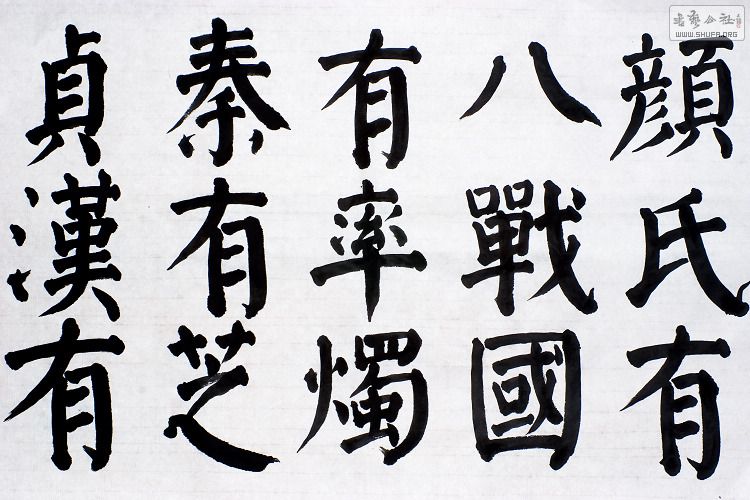 顏氏有
八戰國
有率燭
秦有芝
貞漢有
書藝公社
WWW.SHUFA.ORG